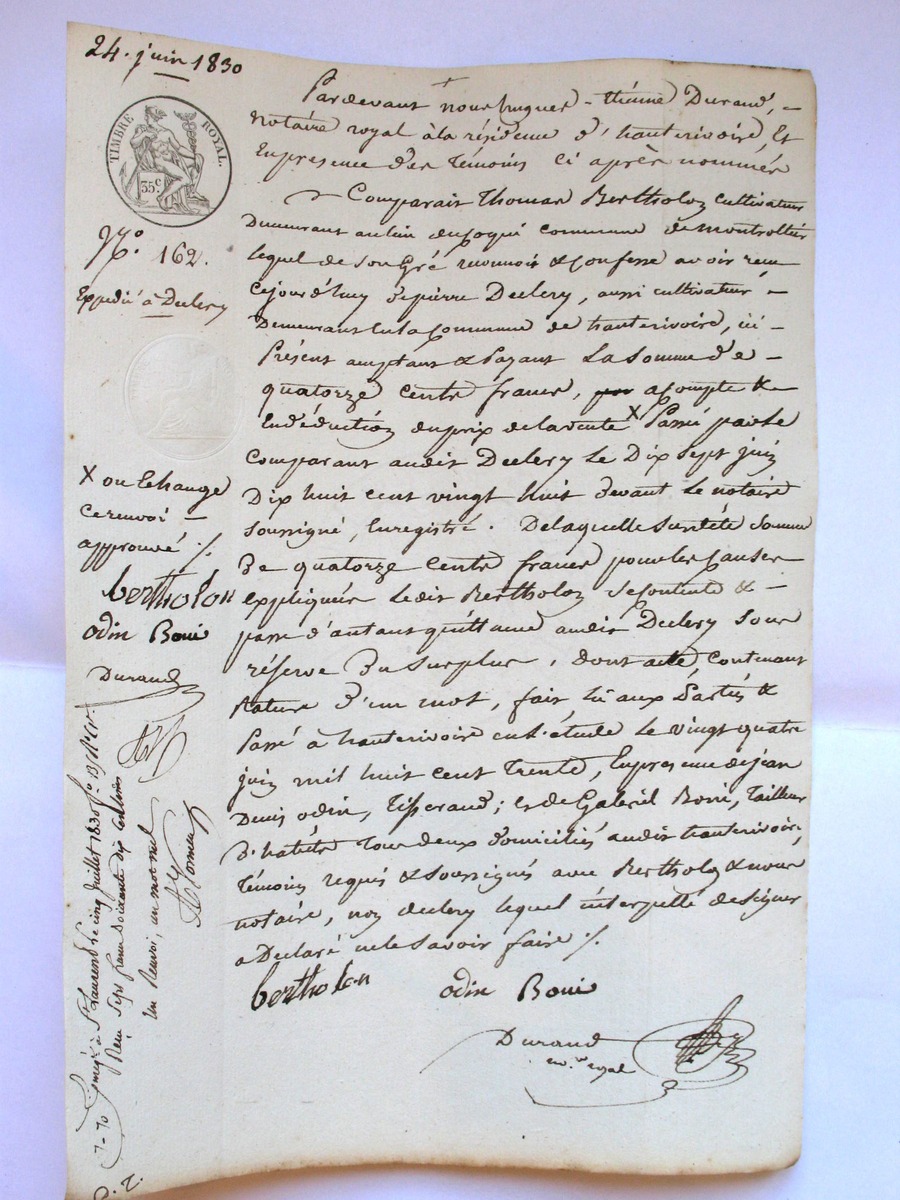 24. juin 1830
TIMBRE ROYAL.
35.c
N.o 162.
Expédié à Declery
Pardevant nous hugues-étienne Durand,
notaire royal à la résidence d'hauterivoire, Et
En présence des témoins ci après nommés
Comparait Thomas Bertholon cultivateur
Demeurant au lieu commune de montrottier
lequel de son Gré reconnoit & confesse avoir reçu
Cejourd'huy de pierre Declery, aussi cultivateur
Demeurant En la Commune de hauterivoire, ici
Présent acceptant & Payant La Somme de
quatorze cents francs, acompte &
En déduction du prix de la vente X Passée par le
Comparant audit Declery Le Dix Sept juin
Dix huit cent vingt huit devant Le notaire
Soussigné, Enregistré. De laquelle Somme
De quatorze cents francs pour les causes
expliquées Ledit Bertholon Se contente &
passe d'autant quittance audit Declery Sous
réserve Du Surplus, Dont acte, contenant
Rature D'un mot, fait, lu aux Parties &
Passé à hauterivoire en L'étude Le vingt quatre
juin mil huit cent Trente, En présence de jean
Denis odin, Tisserand; et de Gabriel Boni, Tailleur
D'habits Tous deux domiciliés audit hauterivoire,
Témoins requis & Soussignés avec Bertholon & nous
notaire, non declery lequel interpellé de signer
a Déclaré ne le Savoir faire ./.
bertholon odin Boni
Durand
no.re royal
X ou Echange
Ce renvoi
approuvé ./.
bertholon
odin Boni
Durand
Enregistré à St Laurent le cinq juillet 1830 fo. 13
Reçu Sept francs Soixante dix centimes
Un Renvoi, un mot nul
7-70